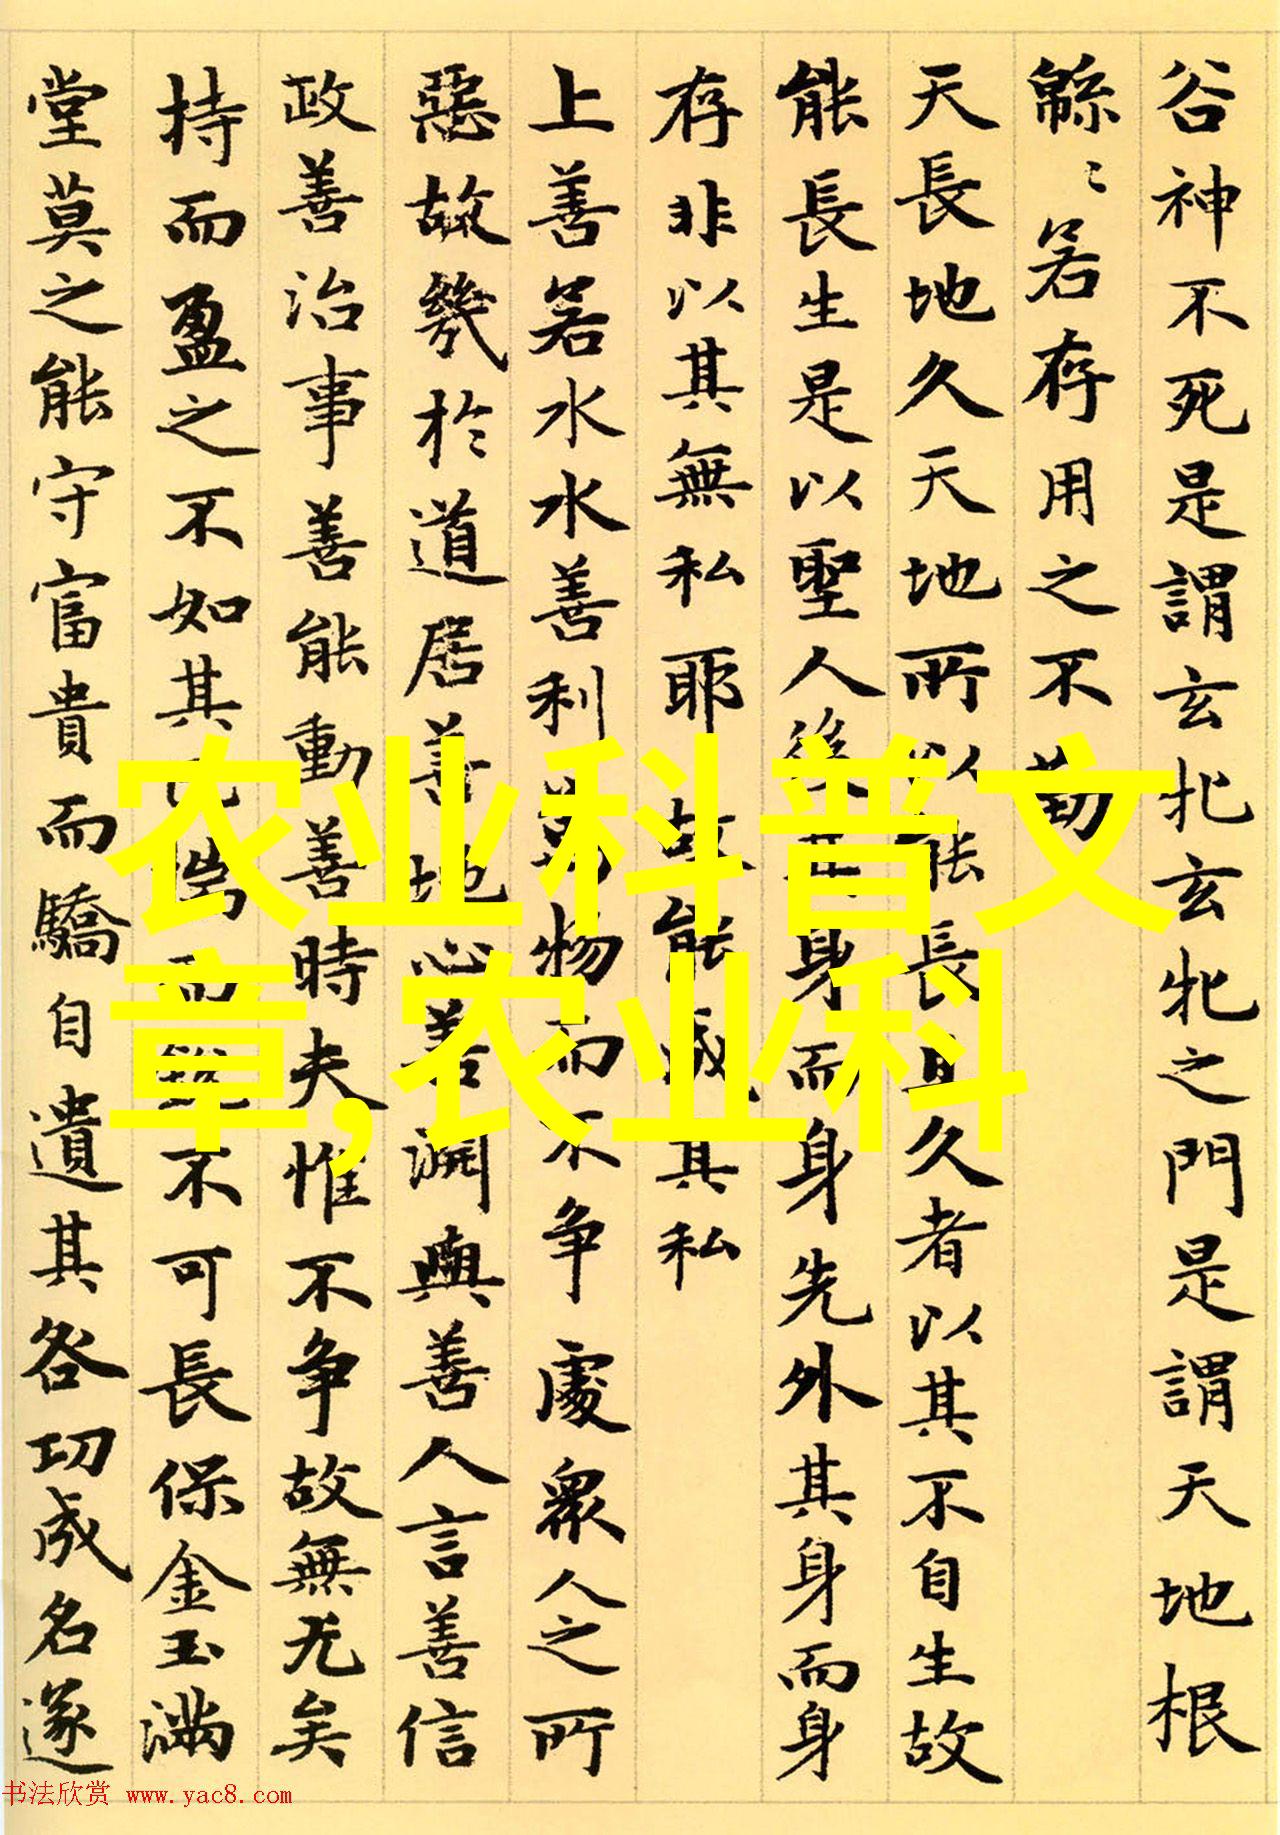 谷神不死是謂玄牝玄牝之門是謂天地根
緜〻若存用之不勤
天長地久天地所以能長且久者以其不自生故
能長生是以聖人後其身而身先外其身而身
存非以其無私耶故能成其私
上善若水水善利萬物而不争處衆人之所
惡故幾於道居善地心善渊與善人言善信
政善治事善能動善時夫惟不争故無尤矣
持而盈之不如其已揣而銳不可長保金玉滿
堂莫之能守富貴而驕自遺其咎功成名遂
农业科普文
章,农业科
书法欣赏 www.yac8.com